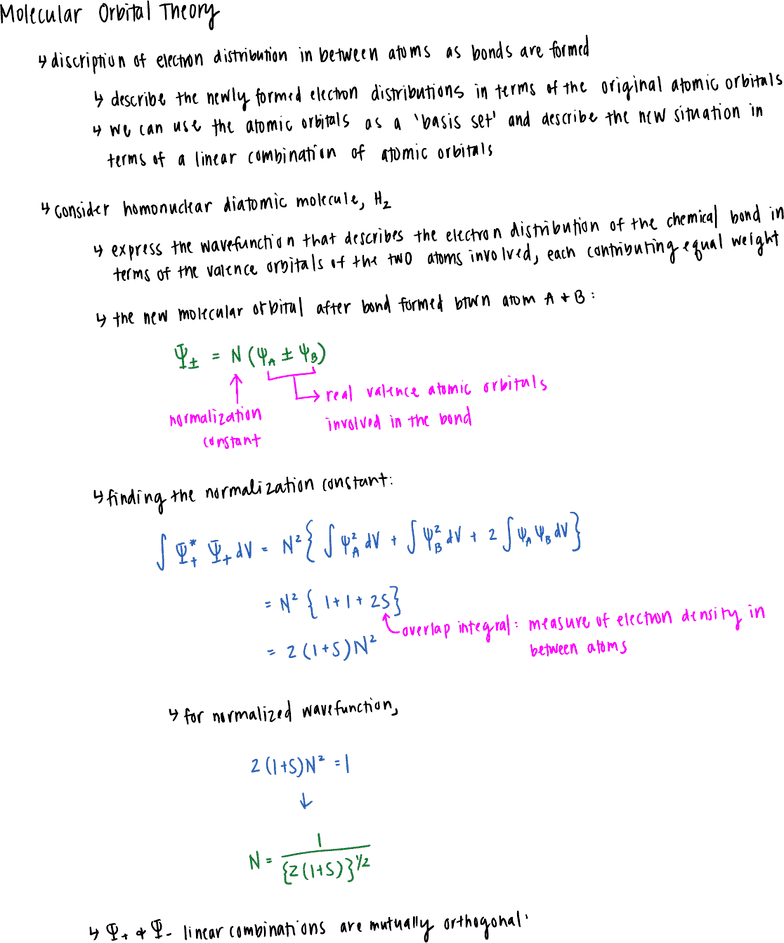 Molecular Orbital Theory
↳ discription of electron distribution in between atoms as bonds are formed
↳ describe the newly formed electron distributions in terms of the original atomic orbitals
↳ we can use the atomic orbitals as a 'basis set' and describe the new situation in
terms of a linear combination of atomic orbitals
↳ consider homonuclear diatomic molecule, H₂
↳ express the wavefunction that describes the electron distribution of the chemical bond in
terms of the valence orbitals of the two atoms involved, each contributing equal weight
↳ the new molecular orbital after bond formed btwn atom A + B :
Ψ± = N (ψA ± ψB)
normalization
constant
real valence atomic orbitals
involved in the bond
↳ finding the normalization constant:
∫ Ψ₊* Ψ₊ dV = N² { ∫ ψA² dV + ∫ ψB² dV + 2 ∫ ψA ψB dV }
= N² { 1 + 1 + 2S }
overlap integral : measure of electron density in
between atoms
= 2 (1+S) N²
↳ for normalized wavefunction,
2 (1+S) N² = 1
↓
N = 1 / {2(1+S)}^1/2
↳ Ψ₊ + Ψ₋ linear combinations are mutually orthogonal.